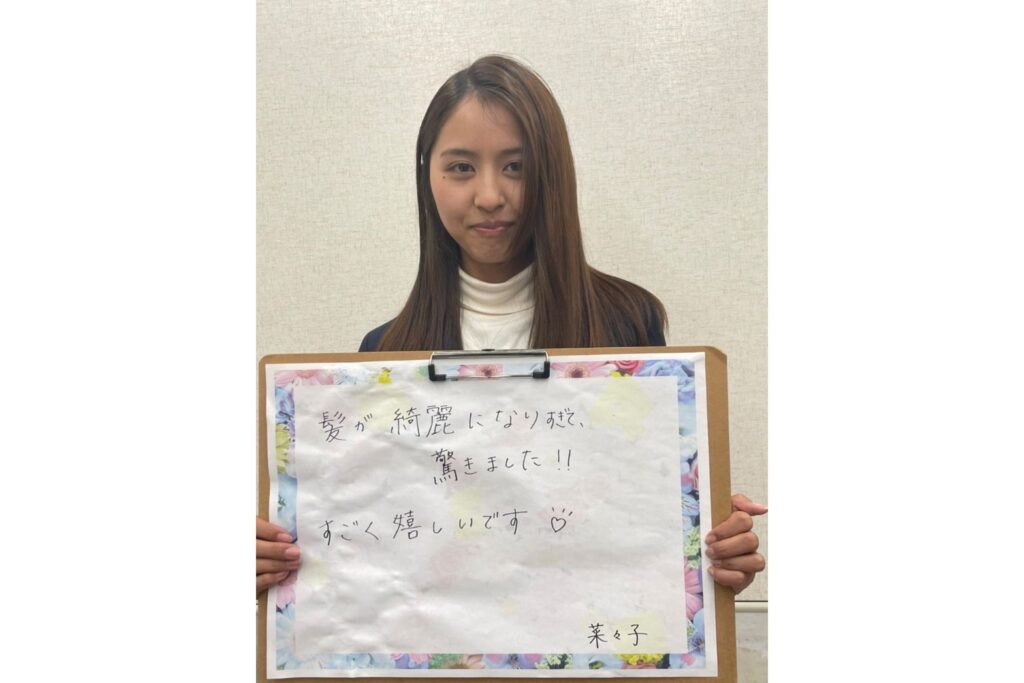 髪が綺麗になりすぎて、
驚きました!!
すごく嬉しいです♡
菜々子